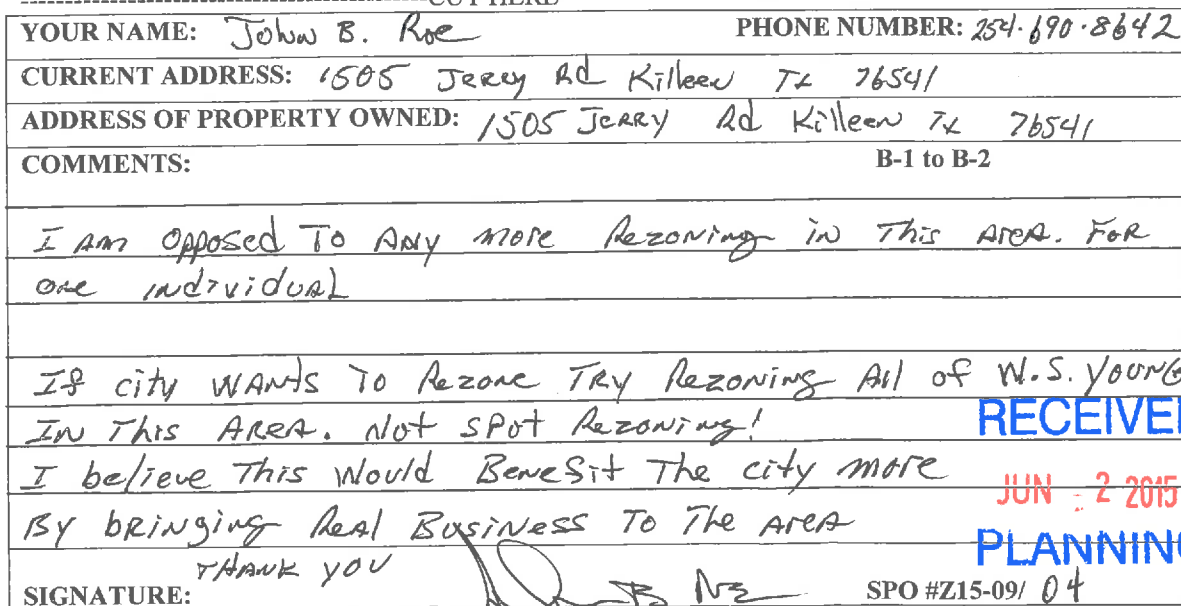 CUT HERE
YOUR NAME: John B. Roe PHONE NUMBER: 254-690-8642
CURRENT ADDRESS: 1505 Jerry Rd Killeen Tx 76541
ADDRESS OF PROPERTY OWNED: 1505 Jerry Rd Killeen Tx 76541
COMMENTS: B-1 to B-2
I Am Opposed To Any more Rezoning in This Area. For
one individual
If city WANTS To Rezone TRY Rezoning All of W.S. YOUNG
IN This AREA. Not SPot Rezoning!
I believe This Would Benefit The city more
By bringing Real Business To The Area
THANK YOU
RECEIVE
JUN - 2 2015
PLANNING
SIGNATURE: SPO #Z15-09/ 04